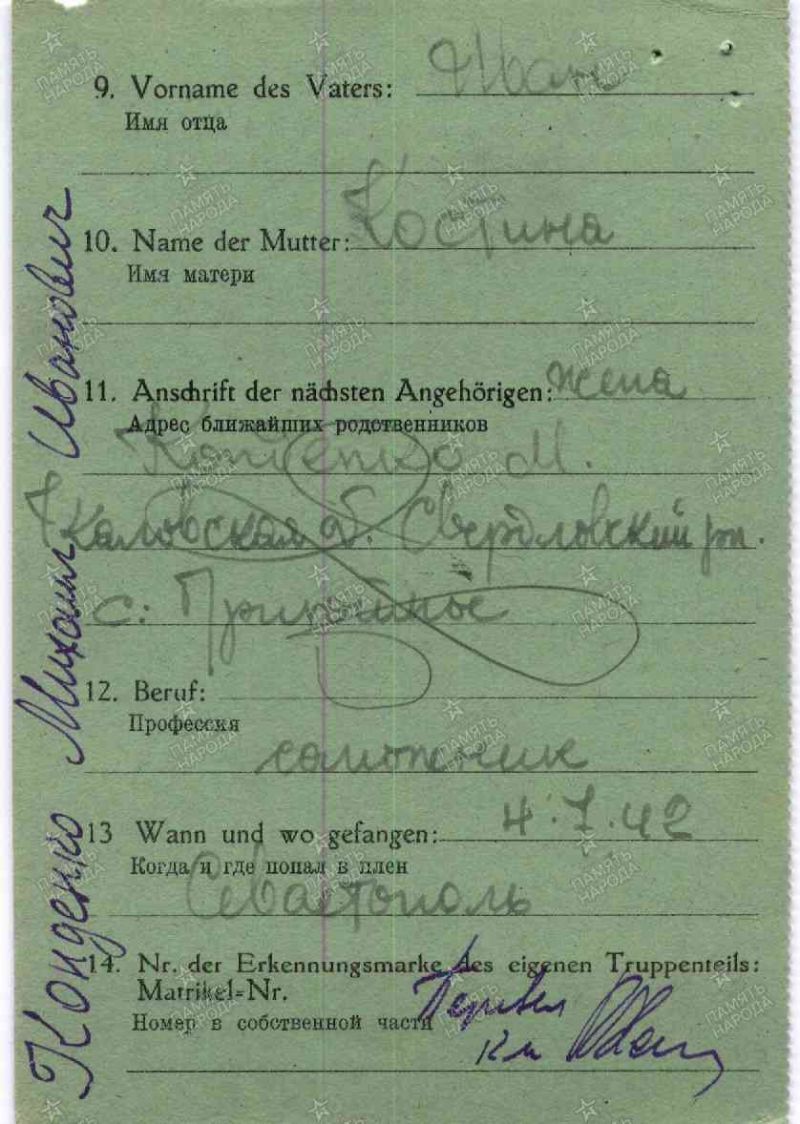 9. Vorname des Vaters: Иван
Имя отца
10. Name der Mutter: Костина
Имя матери
11. Anschrift der nächsten Angehörigen: жена
Адрес ближайших родственников
М.
Свердловский рн.
с:
12. Beruf:
Профессия
сапожник
13 Wann und wo gefangen: 4.7.42
Когда и где попал в плен
Севастополь
14. Nr. der Erkennungsmarke des eigenen Truppenteils:
Matrikel-Nr.
Номер в собственной части
Конденко Михаил Иванович
ПАМЯТЬ НАРОДА